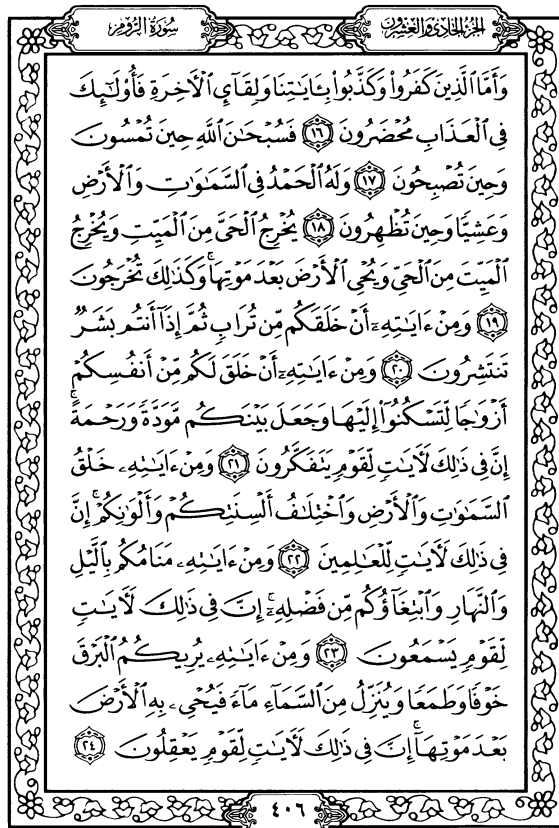 الجزء الحادي والعشرون
سُورَةُ الرُّومِ
وَأَمَّا ٱلَّذِينَ كَفَرُواْ وَكَذَّبُواْ بِـَٔايَٰتِنَا وَلِقَآيِٕ ٱلْأَخِرَةِ فَأُوْلَٰٓئِكَ
فِى ٱلْعَذَابِ مُحْضَرُونَ ١٦ فَسُبْحَٰنَ ٱللَّهِ حِينَ تُمْسُونَ
وَحِينَ تُصْبِحُونَ ١٧ وَلَهُ ٱلْحَمْدُ فِى ٱلسَّمَٰوَٰتِ وَٱلْأَرْضِ
وَعَشِيًّا وَحِينَ تُظْهِرُونَ ١٨ يُخْرِجُ ٱلْحَىَّ مِنَ ٱلْمَيِّتِ وَيُخْرِجُ
ٱلْمَيِّتَ مِنَ ٱلْحَىِّ وَيُحْىِ ٱلْأَرْضَ بَعْدَ مَوْتِهَا ۚ وَكَذَٰلِكَ تُخْرَجُونَ
١٩ وَمِنْ ءَايَٰتِهِۦٓ أَنْ خَلَقَكُم مِّن تُرَابٍ ثُمَّ إِذَآ أَنتُم بَشَرٌ
تَنتَشِرُونَ ٢٠ وَمِنْ ءَايَٰتِهِۦٓ أَنْ خَلَقَ لَكُم مِّنْ أَنفُسِكُمْ
أَزْوَٰجًا لِّتَسْكُنُوٓاْ إِلَيْهَا وَجَعَلَ بَيْنَكُم مَّوَدَّةً وَرَحْمَةً ۚ
إِنَّ فِى ذَٰلِكَ لَأَيَٰتٍ لِّقَوْمٍ يَتَفَكَّرُونَ ٢١ وَمِنْ ءَايَٰتِهِۦ خَلْقُ
ٱلسَّمَٰوَٰتِ وَٱلْأَرْضِ وَٱخْتِلَٰفُ أَلْسِنَتِكُمْ وَأَلْوَٰنِكُمْ ۚ إِنَّ
فِى ذَٰلِكَ لَأَيَٰتٍ لِّلْعَٰلِمِينَ ٢٢ وَمِنْ ءَايَٰتِهِۦ مَنَامُكُم بِٱلَّيْلِ
وَٱلنَّهَارِ وَٱبْتِغَآؤُكُم مِّن فَضْلِهِۦٓ ۚ إِنَّ فِى ذَٰلِكَ لَأَيَٰتٍ
لِّقَوْمٍ يَسْمَعُونَ ٢٣ وَمِنْ ءَايَٰتِهِۦ يُرِيكُمُ ٱلْبَرْقَ
خَوْفًا وَطَمَعًا وَيُنَزِّلُ مِنَ ٱلسَّمَآءِ مَآءً فَيُحْىِۦ بِهِ ٱلْأَرْضَ
بَعْدَ مَوْتِهَآ ۚ إِنَّ فِى ذَٰلِكَ لَأَيَٰتٍ لِّقَوْمٍ يَعْقِلُونَ ٢٤
٤٠٦